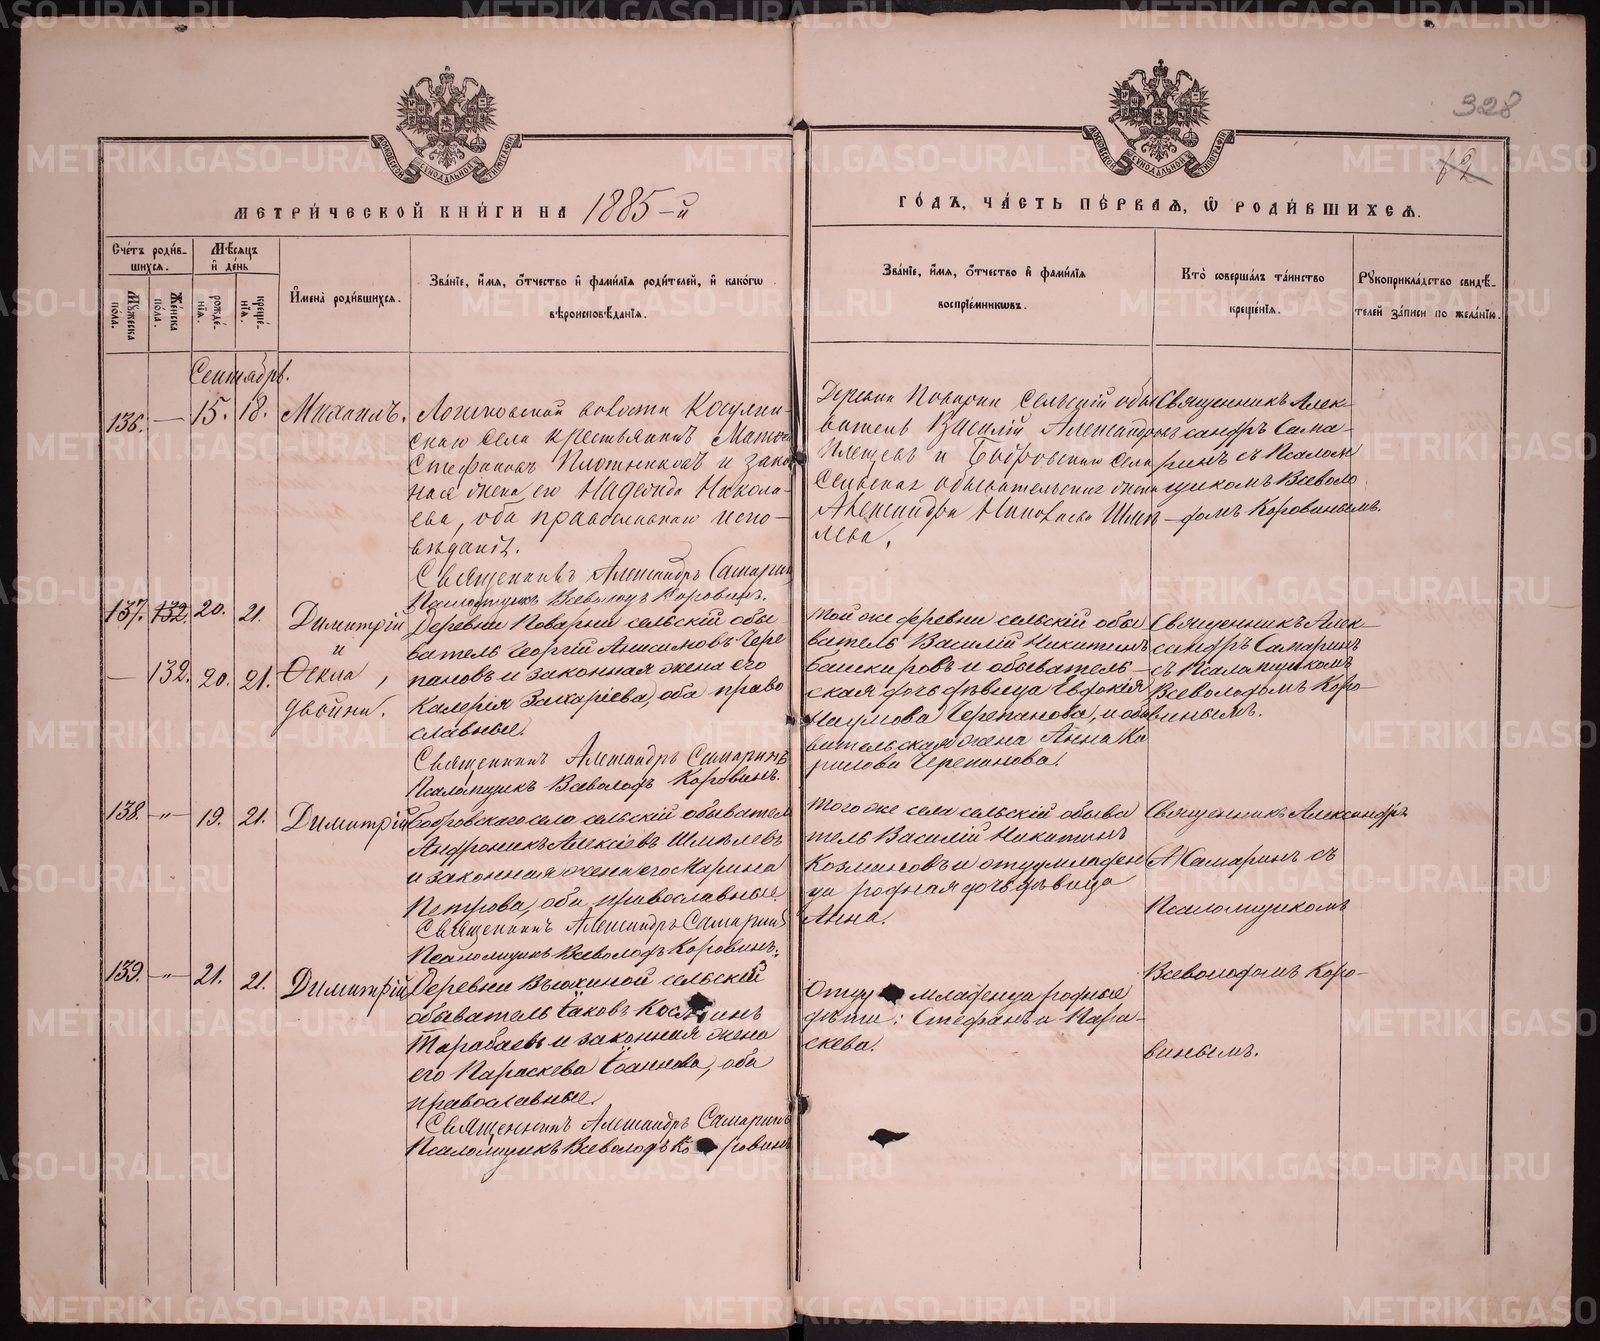 328
12
МЕТРИ́ЧЕСКОЙ КНИ́ГИ НА 1885-й
ГО́ДЪ, ЧА́СТЬ ПЕ́РВАЯ, Ѡ РОДИ́ВШИХСЯ.
Сче́тъ роди́в-
шихся.
Мѣ́сяцъ
и҆ де́нь
Мꙋ́жеска
пола.
Же́нска
по́ла.
рожде́-
нїѧ.
креще́-
нїѧ.
И҆мена̀ роди́вшихся.
Зва́нїе, и҆́мя, ѻ҆́тчество и҆ фами́лїя роди́телей, и҆ како́гѡ
вѣроисповѣ́данїя.
Зва́нїе, и҆́мя, ѻ҆́тчество и҆ фами́лїя
воспрїе́мниковъ.
Кто̀ соверша́лъ та́инство
креще́нїя.
Рꙋкоприкла́дство свидѣ́-
телей за́писи по жела́нїю.
Сентябрь.
136. — 15. 18. Михаилъ.
Логиновской волости Косулин-
скаго села крестьянинъ
Стефановъ Плотниковъ и закон
ная жена его Надежда Никола-
ева, оба православнаго испо-
вѣданія.
Священникъ Александръ Самаринъ
Псаломщикъ Всеволодъ Коровинъ.
Деревни Поварни сельскій обы
ватель Василій Александровъ
Плещевъ и Бобровскаго села
сельская обывательская жена
Александра Шмы
лева.
Священникъ Алек-
сандръ Сама-
ринъ съ Псалом
щикомъ Всеволо
-домъ Коровинымъ.
137. 132. 20. 21. Димитрій
и
— 132. 20. 21. Ѳекла,
двойни.
Деревни Поварни сельскій обы
ватель Георгій Анисимовъ Чере
пановъ и законная жена его
Калерія Захаріева, оба право
славные.
Священникъ Александръ Самаринъ
Псаломщикъ Всеволодъ Коровинъ.
Той же деревни сельскій обы
ватель Василій Никитинъ
Башкировъ и обыватель-
ская дочь дѣвица Евдокія
Наумова Черепанова, и обы
вательская жена Анна Ка
рилова Черепанова.
Священникъ Алек-
сандръ Самаринъ
съ Псаломщикомъ
Всеволодомъ Коро-
винымъ.
138. -„- 19. 21. Димитрій
Бобровскаго села сельскій обыватель
Андроникъ Алексіевъ Шмылевъ
и законная жена его Марина
Петрова, оба православные.
Священникъ Александръ Самаринъ
Псаломщикъ Всеволодъ Коровинъ.
Того же села сельскій обыва
тель Василій Никитинъ
Козминовъ и отцу младен
ца родная дочь дѣвица
Анна.
Священникъ Александръ
Самаринъ съ
Псаломщикомъ
Всеволодомъ Коро-
винымъ.
139. -„- 21. 21. Димитрій
Деревни Вьюхиной сельскій
обыватель Іаковъ
Тарабаевъ и законная жена
его Параскева Іоаннова, оба
православные.
Священникъ Александръ Самаринъ
Псаломщикъ Всеволодъ Коровинъ
Отцу младенца родные
дѣти: Стефанъ и Пара-
скева.
METRIKI.GASO-URAL.RU